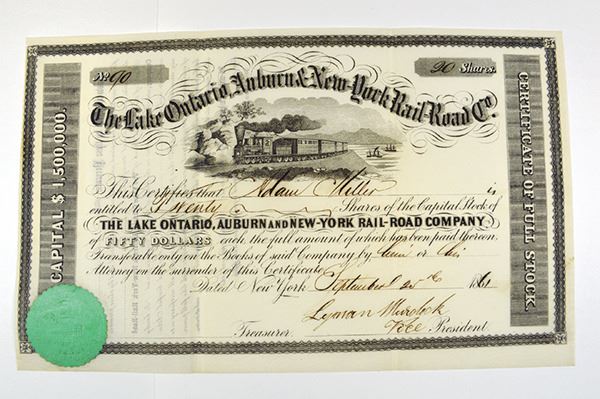 No. 90
20 Shares.
The Lake Ontario, Auburn & New-York Rail-Road Co.
CAPITAL $1,500,000.
CERTIFICATE OF FULL STOCK.
This Certifies that Adam Miller is
entitled to Twenty Shares of the Capital Stock of
THE LAKE ONTARIO, AUBURN AND NEW-YORK RAIL-ROAD COMPANY
of FIFTY DOLLARS each, the full amount of which has been paid thereon.
Transferable only on the Books of said Company by him or his
Attorney on the surrender of this Certificate.
Dated New York September 25th 1861
Lyman Murdock
Treasurer. Vice President